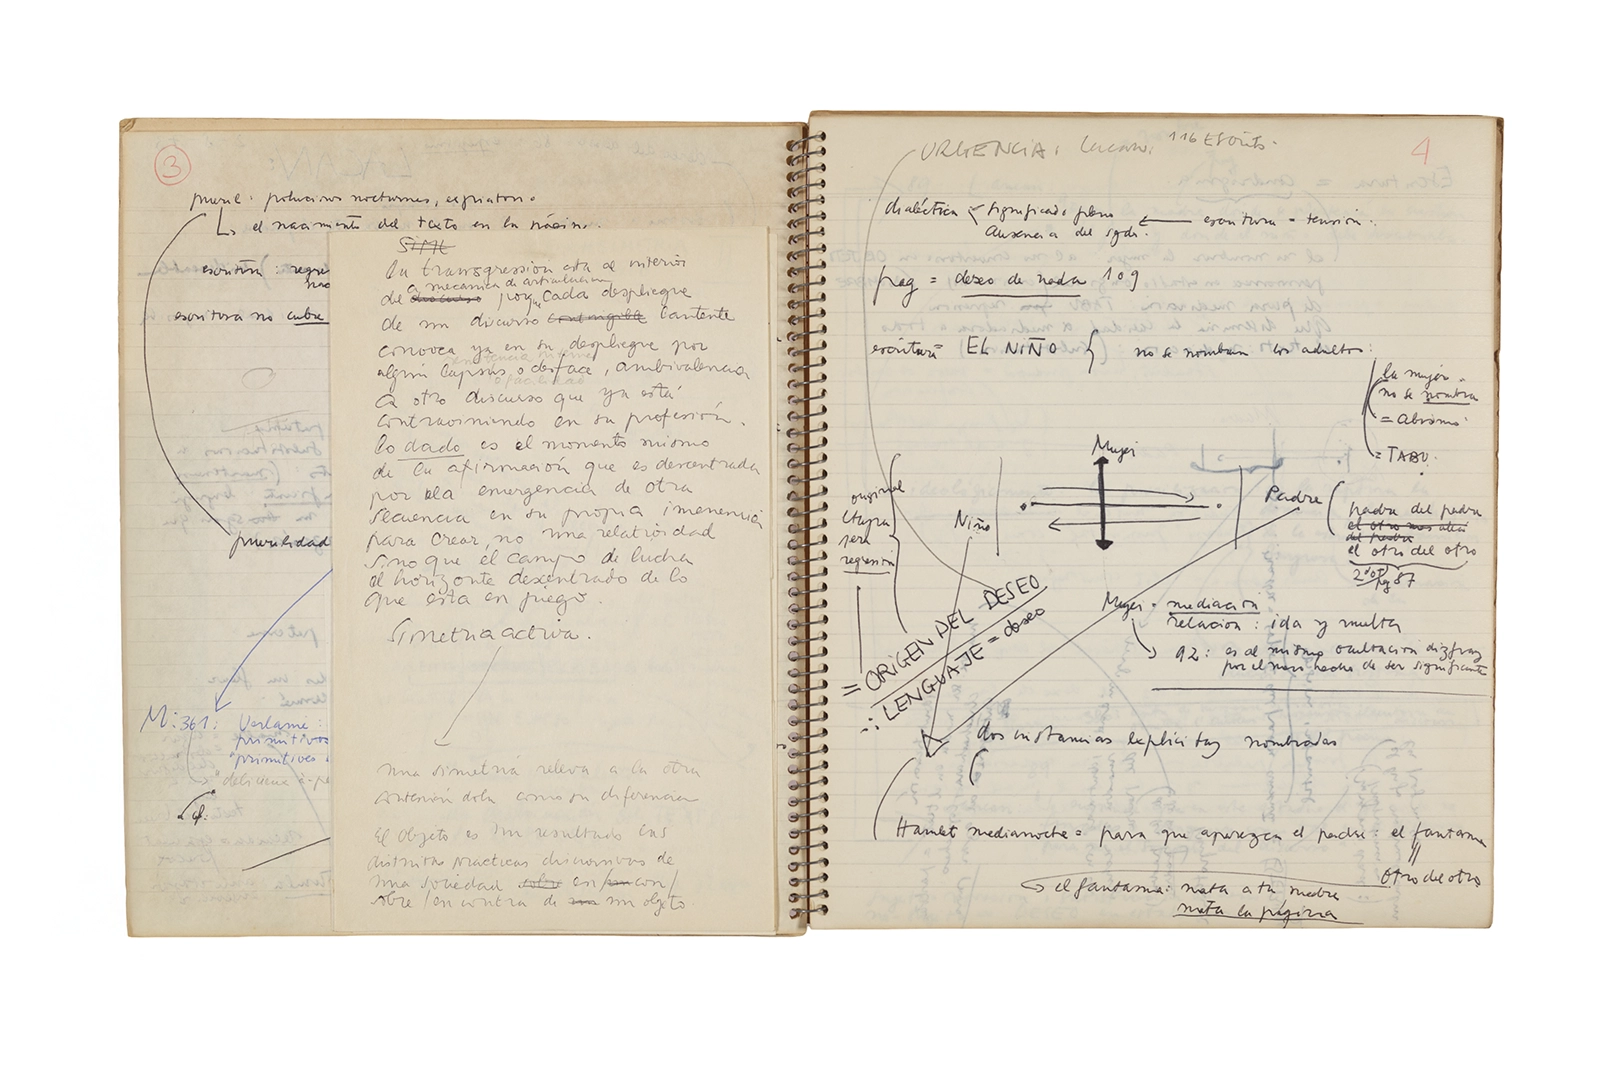 3
pueril: poluciones nocturnas, expiatorio
el nacimiento del texto en la página.
escritura: regre
escritura no cubre
puerilidad
M: 361: Verlaine:
primitivos
primitives
"delicieux à pe
SIME
La transgresión esta al interior
de la mecanica de articulacion
discurso porque cada despliegue
de un discurso contingible
convoca ya en su despliegue por
algun lapsus o desface, ambivalencia
o facilidad
a otro discurso que ya está
contraoniendo en su profesión.
Lo dado es el momento mismo
de la afirmación que es descentrada
por la emergencia de otra
secuencia en su propia inmenencia
para crear, no una relatividad
sino que el campo de lucha
el horizonte descentrado de lo
que esta en juego.
Simetria activa.
una simetria releva a la otra
como su diferencia
El objeto es un resultado
distintas practicas discursivas de
una sociedad sobre en / con /
sobre / en contra de un un objeto.
4
URGENCIA: Lacan: 116 Escrits.
dialéctica significado pleno
Ausencia del sgdo.
escritura = tensión.
pag = deseo de nada 109
escritura = EL NIÑO } no se nombran los adultos:
la mujer
no se nombra
= abismo
= TABU.
Mujer
original
etapa
sera
regresión
Niño
Padre
padre del padre
el otro mas alla
del padre
el otro del otro
pg 87
= ORIGEN DEL DESEO
∴ LENGUAJE = deseo
Mujer = mediación
relacion: ida y vuelta
92: es al mismo ocultacion disfraz
por el mero hecho de ser significante
dos instancias explicitas nombradas
Hamlet medianoche = para que aparezca el padre: el fantasma
||
otro de otro
el fantasma: mata a tu madre
mata la página